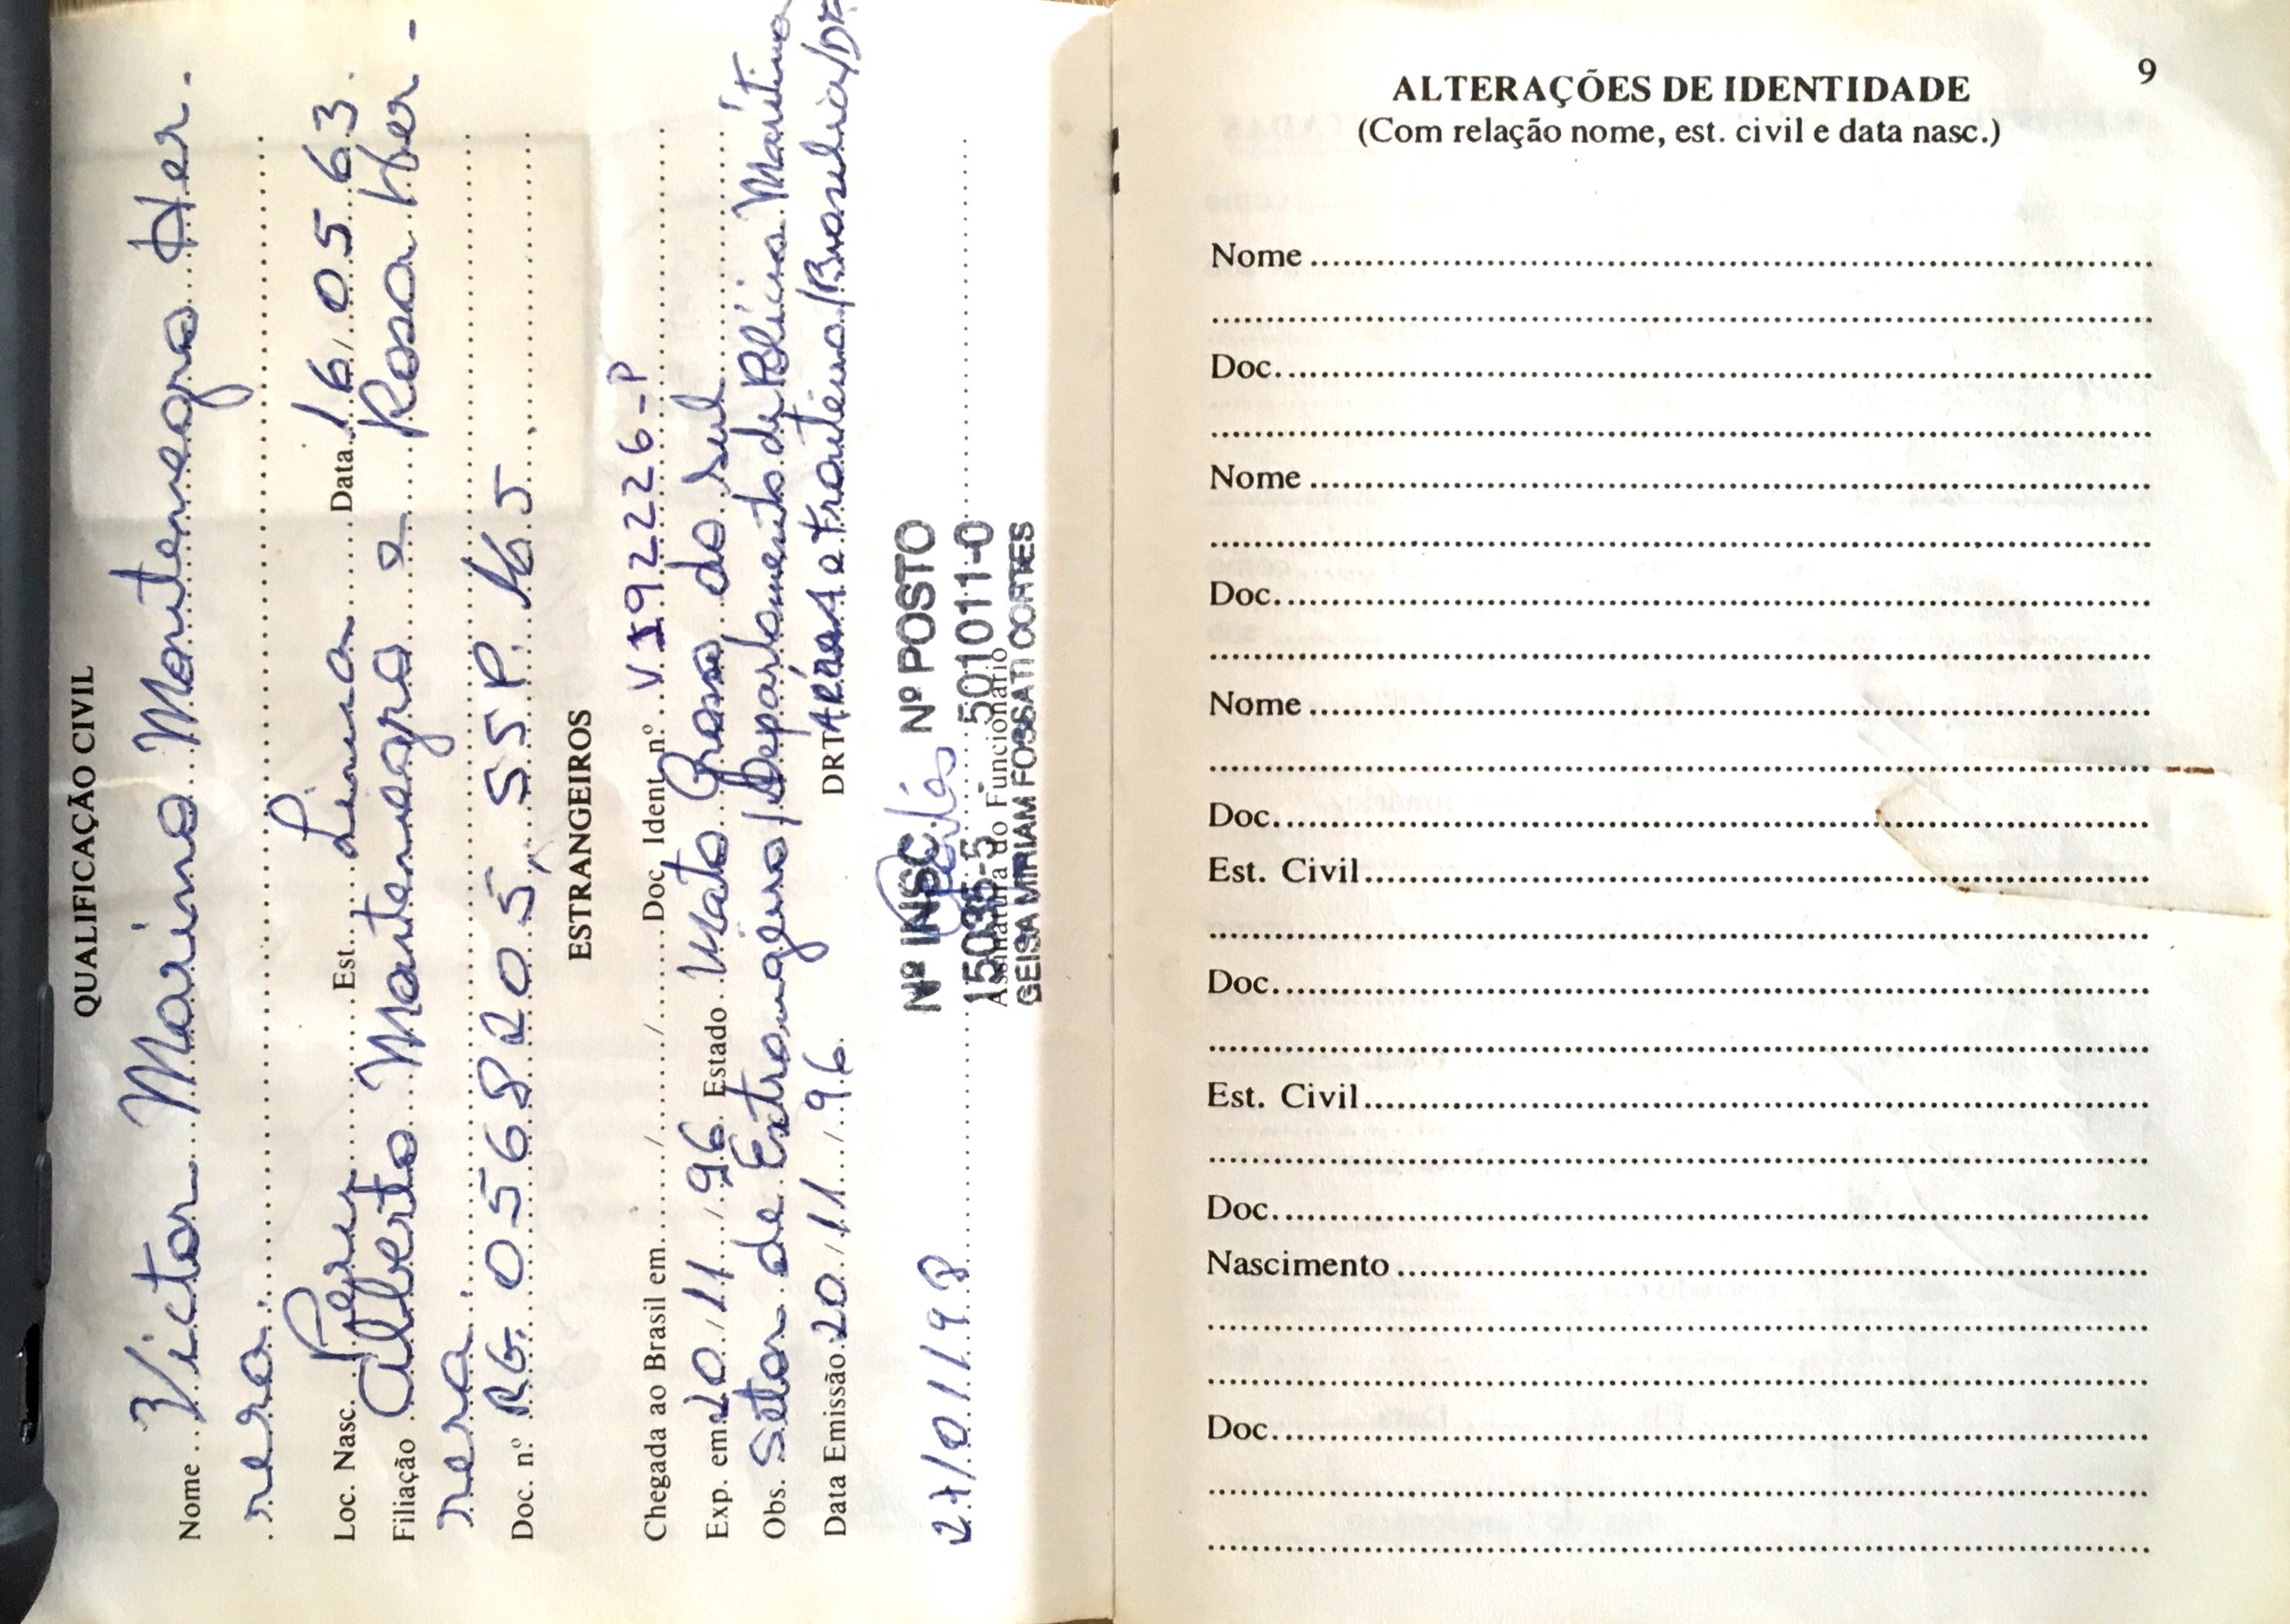 QUALIFICAÇÃO CIVIL
Nome Victor Marino Montenegro Her-
rera.
Loc. Nasc. Peru Est. Lima Data 16.05.63.
Filiação Alberto Montenegro e Rosa Her-
rera.
Doc. n.º RG. 0568205, SSP.
ESTRANGEIROS
Chegada ao Brasil em / / Doc. Ident. n.º 192226-P
Exp. em 20/11/96 Estado Mato Grosso do Sul
Obs. Setor de Estrangeiro/Departamento de Polícia Marítima
Data Emissão 20/11/96. DRT Aérea e Fronteira/(Brasília/DF
Nº INSC. Nº POSTO
27/01/98 15035-5 501011-0
Assinatura do Funcionário
GEISA MIRIAM FOSSATI CORTES
9
ALTERAÇÕES DE IDENTIDADE
(Com relação nome, est. civil e data nasc.)
Nome
Doc.
Nome
Doc.
Nome
Doc.
Est. Civil
Doc.
Est. Civil
Doc.
Nascimento
Doc.